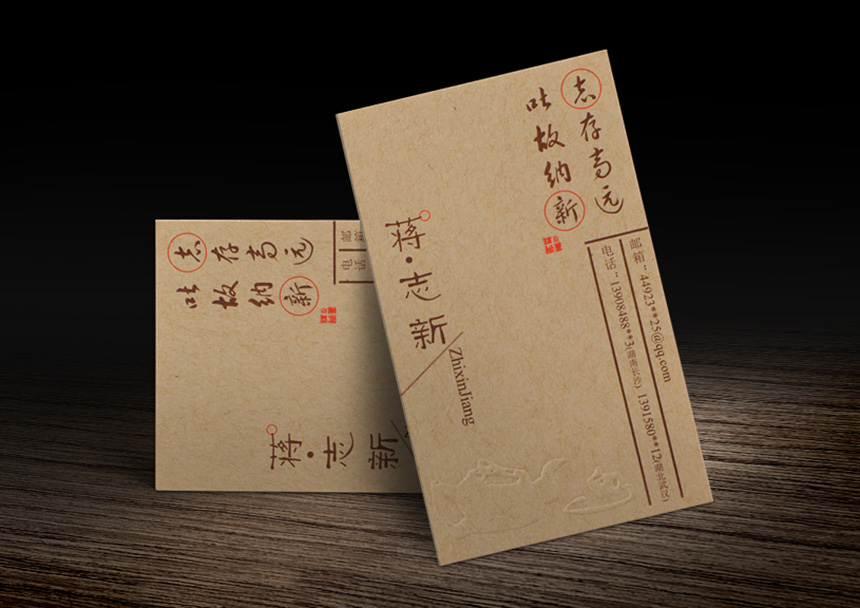 志存高远
吐故纳新
邮箱
电话
蒋·志新
志存高远
吐故纳新
邮箱：44923**25@qq.com
电话：13908488**3(湖南长沙) 1391580**12(湖北武汉)
蒋·志新
ZhixinJiang